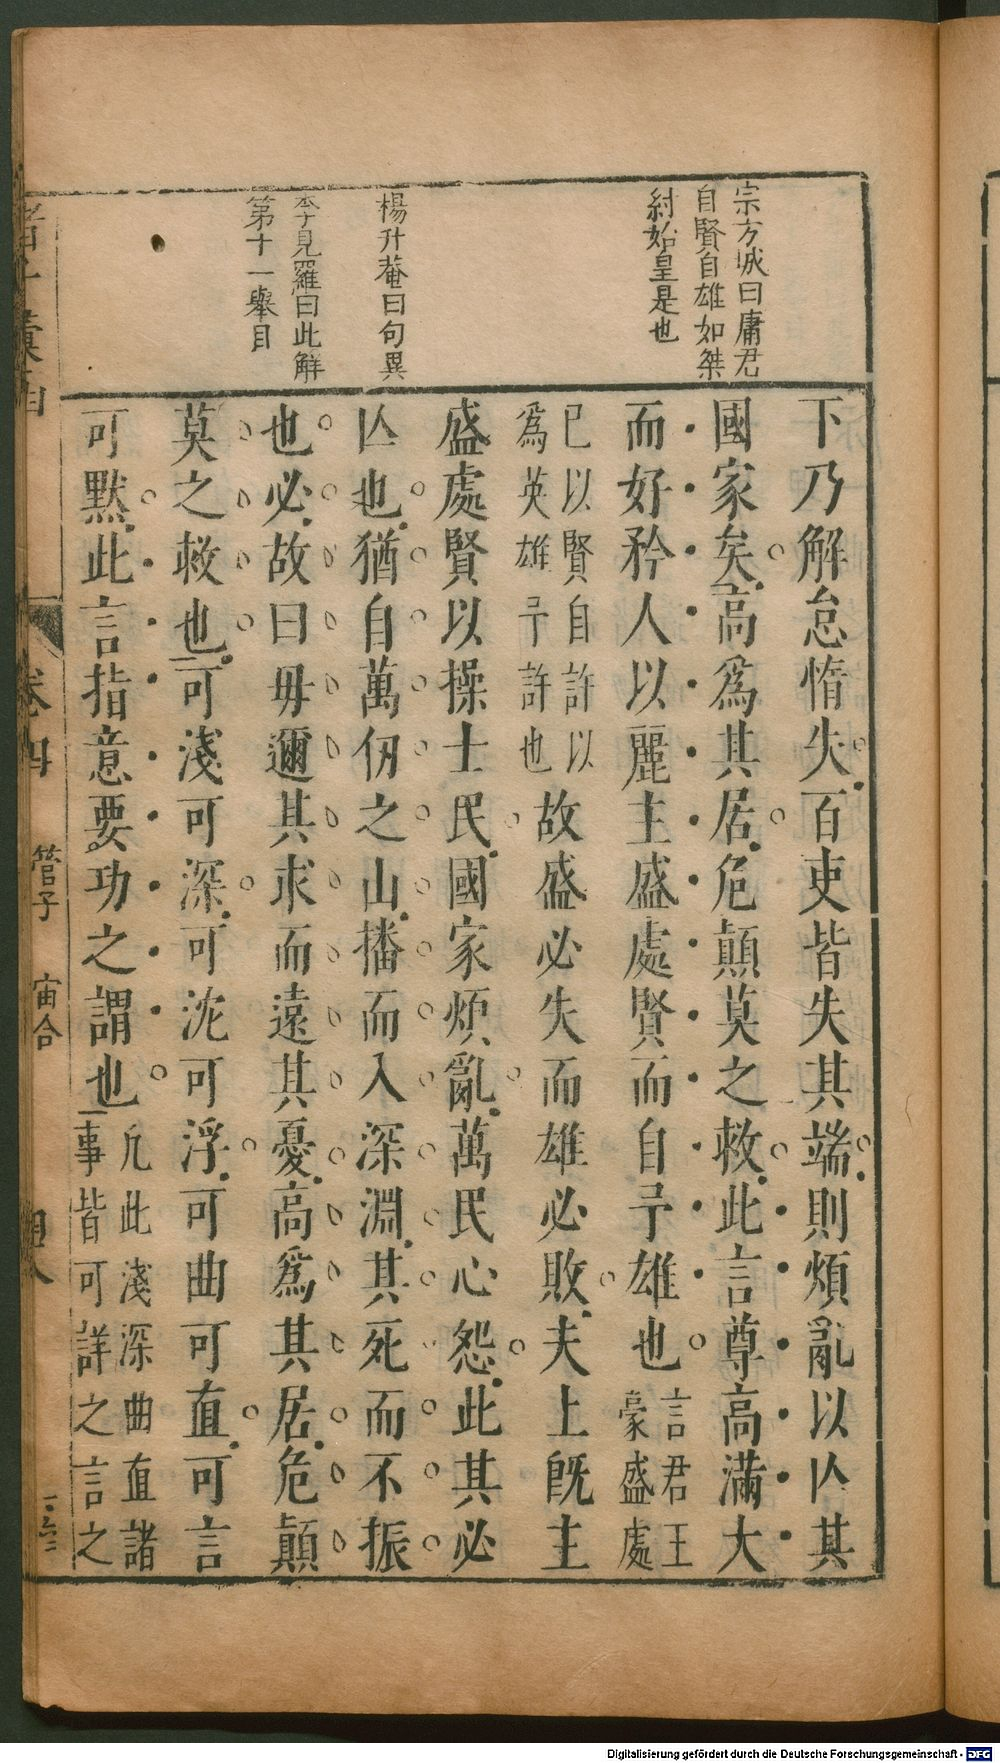 宗方城曰庸君
自賢自雄如桀
紂始皇是也
楊升菴曰句異
李見羅曰此解
第十一舉目
下乃解怠惰失百吏皆失其端則煩亂以亾其
國家矣高爲其居危顛莫之救此言尊高滿大
而好矜人以麗主盛處賢而自予雄也言君王
豪盛處
已以賢自許以
爲英雄予許也故盛必失而雄必敗夫上旣主
盛處賢以操士民國家煩亂萬民心怨此其必
亾也猶自萬仞之山播而入深淵其死而不振
也必故曰毋邇其求而遠其憂高爲其居危顛
莫之救也可淺可深可沈可浮可曲可直可言
可默此言指意要功之謂也凢此淺深曲直諸
事皆可詳之言之
卷四
管子
宙合